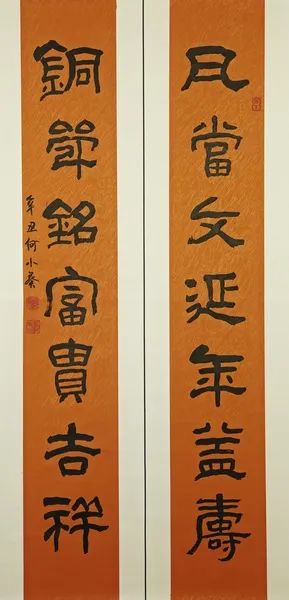 瓦當文延年益壽
銅銘富貴吉祥
辛丑何小葵